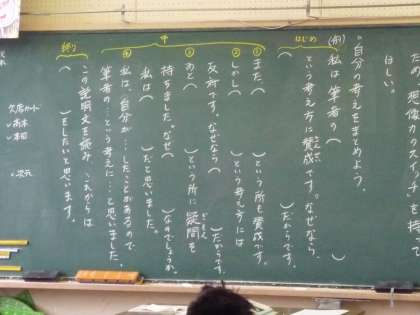 想像力のスイッチを持て
ほしい。
自分の考えをまとめよう。
はじめ
(例)私は、筆者の( )
という考え方に賛成です。なぜなら、
さんせい
( )だからです。
中
①また、( )という所も賛成です。
②しかし( )という考え方には
反対です。なぜなら( )だからです。
③あと( )という所に疑問を
ぎもん
持ちました。なぜ( )なのでしょうか。
私は( )だと思いました。
④私は、自分が…したことがあるので、
筆者の…という考えに…と思いました。
終り
この説明文を読み、これからは
( )をしたいと思います。